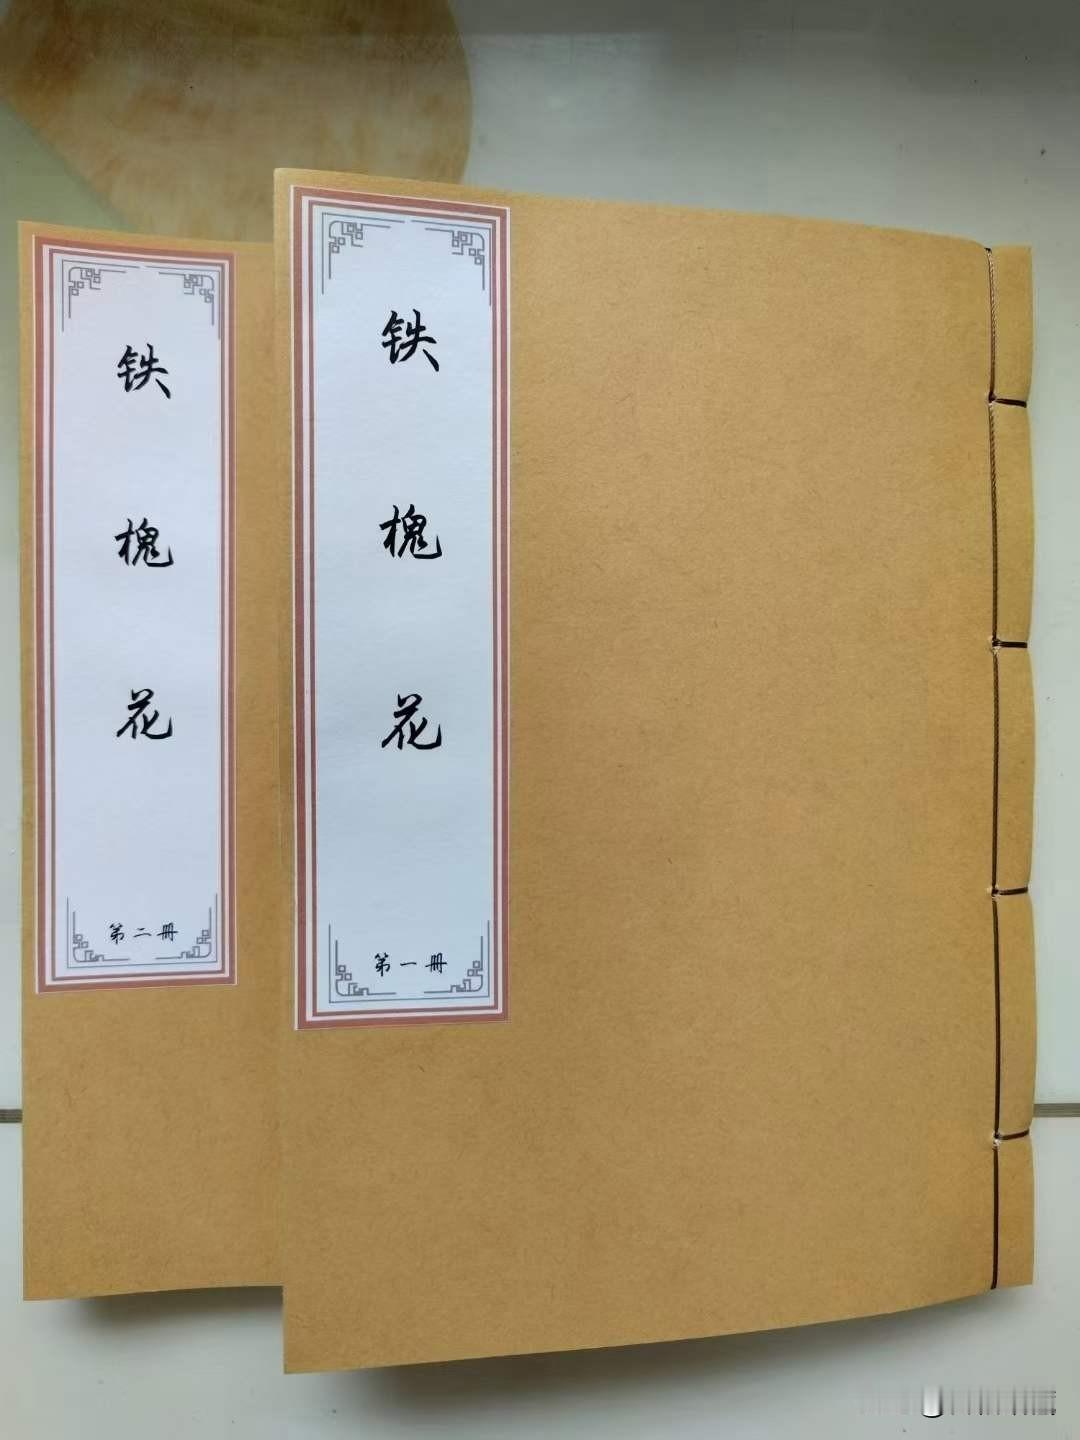 铁槐花
第一册
铁槐花
第二册